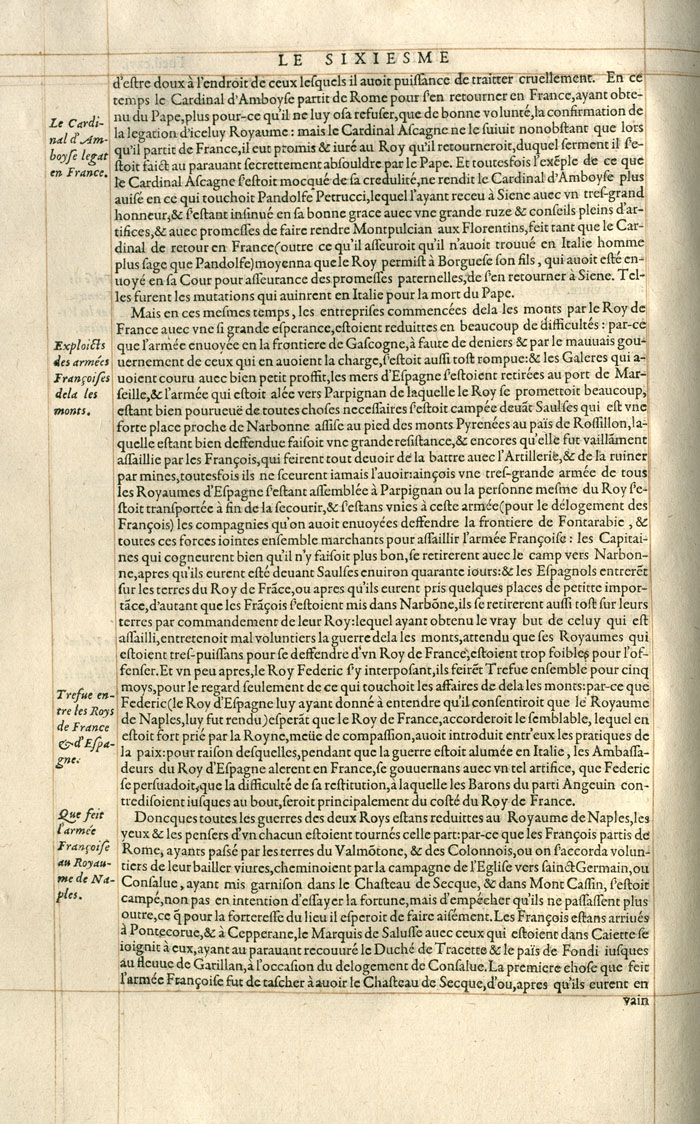 LE SIXIESME
d'eſtre doux à l'endroit de ceux leſquels il auoit puiſſance de traitter cruellement. En ce
temps le Cardinal d'Amboyſe partit de Rome pour ſ'en retourner en France,ayant obte-
nu du Pape,plus pour-ce qu'il ne luy oſa refuſer,que de bonne volunté,la confirmation de
la legation d'iceluy Royaume : mais le Cardinal Aſcagne ne le ſuiuit nonobſtant que lors
qu'il partit de France,il eut promis & iuré au Roy qu'il retourneroit,duquel ſerment il ſ'e-
ſtoit faict au parauant ſecrettement abſouldre par le Pape. Et toutesfois l'exẽple de ce que
le Cardinal Aſcagne ſ'eſtoit mocqué de ſa credulité,ne rendit le Cardinal d'Amboyſe plus
auiſé en ce qui touchoit Pandolfe Petrucci,lequel l'ayant receu à Siene auec vn tres-grand
honneur,& ſ'eſtant inſinué en ſa bonne grace auec vne grande ruze & conſeils pleins d'ar-
tifices,& auec promeſſes de faire rendre Montpulcian aux Florentins,feit tant que le Car-
dinal de retour en France(outre ce qu'il aſſeuroit qu'il n'auoit trouué en Italie homme
plus ſage que Pandolfe)moyenna que le Roy permiſt à Borgueſe ſon fils, qui auoit eſté en-
uoyé en ſa Cour pour aſſeurance des promeſſes paternelles,de ſ'en retourner à Siene. Tel-
les furent les mutations qui auinrent en Italie pour la mort du Pape.
Mais en ces meſmes temps, les entrepriſes commencées dela les monts par le Roy de
France auec vne ſi grande eſperance,eſtoient reduittes en beaucoup de difficultés : par-ce
que l'armée enuoyée en la frontiere de Gaſcogne,à faute de deniers & par le mauuais gou-
uernement de ceux qui en auoient la charge,ſ'eſtoit auſſi toſt rompue:& les Galeres qui a-
uoient couru auec bien petit proffit,les mers d'Eſpagne ſ'eſtoient retirées au port de Mar-
ſeille,& l'armée qui eſtoit alée vers Parpignan de laquelle le Roy ſe promettoit beaucoup,
eſtant bien pourueuë de toutes choſes neceſſaires ſ'eſtoit campée deuãt Saulſes qui eſt vne
forte place proche de Narbonne aſſiſe au pied des monts Pyrenées au païs de Roſſillon,la-
quelle eſtant bien deffendue faiſoit vne grande reſiſtance,& encores qu'elle fut vaillãment
aſſaillie par les François,qui feirent tout deuoir de la battre auec l'Artillerie,& de la ruiner
par mines,toutesfois ils ne ſceurent iamais l'auoir:ainçois vne tres-grande armée de tous
les Royaumes d'Eſpagne ſ'eſtant aſſemblée à Parpignan ou la perſonne meſme du Roy ſ'e-
ſtoit tranſportée à fin de la ſecourir,& ſ'eſtans vnies à ceſte armée(pour le délogement des
François) les compagnies qu'on auoit enuoyées deffendre la frontiere de Fontarabie, &
toutes ces forces iointes enſemble marchants pour aſſaillir l'armée Françoiſe : les Capitai-
nes qui cogneurent bien qu'il n'y faiſoit plus bon,ſe retirerent auec le camp vers Narbon-
ne,apres qu'ils eurent eſté deuant Saulſes enuiron quarante iours:& les Eſpagnols entrerẽt
ſur les terres du Roy de Frãce,ou apres qu'ils eurent pris quelques places de petitte impor-
tãce,d'autant que les Frãçois ſ'eſtoient mis dans Narbõne,ils ſe retirerent auſſi toſt ſur leurs
terres par commandement de leur Roy:lequel ayant obtenu le vray but de celuy qui eſt
aſſailli,entretenoit mal voluntiers la guerre dela les monts,attendu que ſes Royaumes qui
eſtoient tres-puiſſans pour ſe deffendre d'vn Roy de France,eſtoient trop foibles pour l'of-
fenſer.Et vn peu apres,le Roy Federic ſ'y interpoſant,ils feirẽt Trefue enſemble pour cinq
moys,pour le regard ſeulement de ce qui touchoit les affaires de dela les monts:par-ce que
Federic(le Roy d'Eſpagne luy ayant donné à entendre qu'il conſentiroit que le Royaume
de Naples,luy fut rendu)eſperãt que le Roy de France,accorderoit le ſemblable, lequel en
eſtoit fort prié par la Royne,meüe de compaſſion,auoit introduit entr'eux les pratiques de
la paix:pour raiſon deſquelles,pendant que la guerre eſtoit alumée en Italie, les Ambaſſa-
deurs du Roy d'Eſpagne alerent en France,ſe gouuernans auec vn tel artifice, que Federic
ſe perſuadoit,que la difficulté de ſa reſtitution,à laquelle les Barons du parti Angeuin con-
trediſoient iuſques au bout,ſeroit principalement du coſté du Roy de France.
Doncques toutes les guerres des deux Roys eſtans reduittes au Royaume de Naples,les
yeux & les penſers d'vn chacun eſtoient tournés celle part:par-ce que les François partis de
Rome, ayants paſſé par les terres du Valmõtone, & des Colonnois,ou on ſ'accorda volun-
tiers de leur bailler viures,cheminoient par la campagne de l'Egliſe vers ſainct Germain,ou
Conſalue, ayant mis garniſon dans le Chaſteau de Secque,& dans Mont Caſſin, ſ'eſtoit
campé,non pas en intention d'eſſayer la fortune,mais d'empécher qu'ils ne paſſaſſent plus
outre,ce q̃ pour la fortereſſe du lieu il eſperoit de faire aiſément.Les François eſtans arriués
à Pontecorue,& à Cepperane,le Marquis de Saluſſe auec ceux qui eſtoient dans Caiette ſe
ioignit à eux,ayant au parauant recouuré le Duché de Tracette & le païs de Fondi iuſques
au fleuue de Garillan,à l'occaſion du delogement de Conſalue.La premiere choſe que feit
l'armée Françoiſe fut de taſcher à auoir le Chaſteau de Secque,d'ou,apres qu'ils eurent en
vain
Le Cardi-
nal d'Am-
boyſe legat
en France.
Exploicts
des armées
Françoiſes
dela les
monts.
Trefue en-
tre les Roys
de France
& d'Eſpa-
gne.
Que feit
l'armée
Françoiſe
au Royau-
me de Na-
ples.